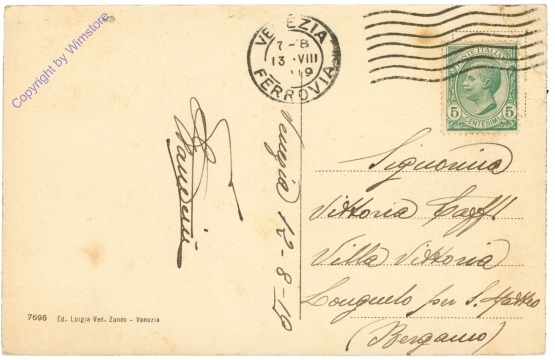 Copyright by Wimstore
VENEZIA
7-8
13·VIII
19
FERROVIA
POSTE ITALIANE
5 5
CENTESIMI
Venezia 12-8-19
Signorina
Vittoria
Villa Vittoria
Longuelo per S. Matteo
(Bergamo)
7696 Ed. Luigia Ved. Zanco - Venezia